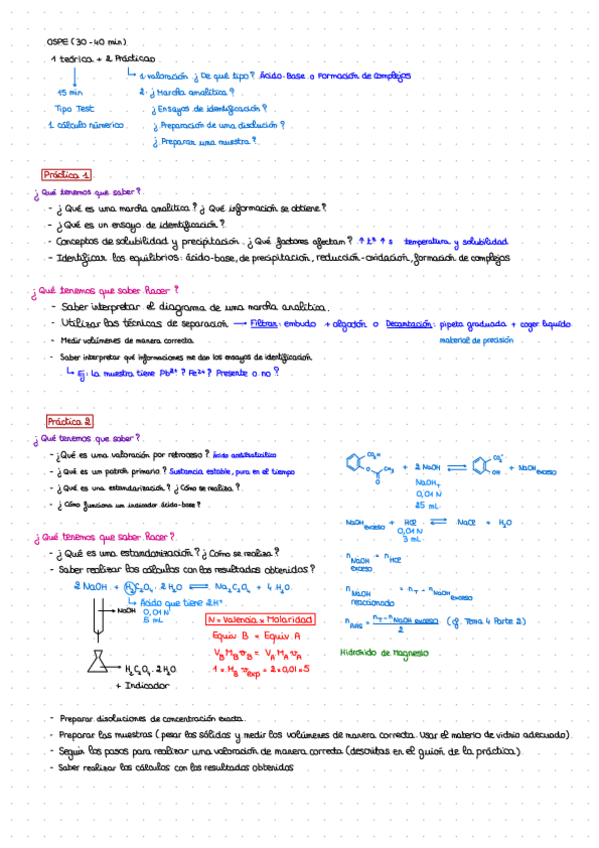 OSPE (30-40 min)
1 teórica + 2 Prácticas
1 valoración ¿De qué tipo? Ácido-Base o Formación de Complejos
15 min
2. ¿Marcha analítica?
Tipo Test
¿Ensayos de identificación?
1 cálculo númerico
¿Preparación de una disolución?
¿Preparar una muestra?
Práctica 1
¿Qué tenemos que saber?
- ¿Qué es una marcha analítica? ¿Qué información se obtiene?
- ¿Qué es un ensayo de identificación?
- Conceptos de solubilidad y precipitación. ¿Qué factores afectam? ↑tª ↑s temperatura y solubilidad
- Identificar los equilibrios: ácido-base, de precipitación, reducción-oxidación, formación de complejos
¿Qué tenemos que saber hacer?
- Saber interpretar el diagrama de una marcha analítica.
- Utilizar las técnicas de separación → Filtrar: embudo + algodón o Decantación: pipeta graduada + coger líquido
- Medir volúmenes de manera correcta
material de precisión
- Saber interpretar qué informaciones me dan los ensayos de identificación
Ej: La muestra tiene Pb²⁺? Fe²⁺? Presente o no?
Práctica 2
¿Qué tenemos que saber?
- ¿Qué es una valoración por retroceso? Ácido acetilsalicílico
- ¿Qué es um patrón primario? Sustancia estable, pura en el tiempo
- ¿Qué es una estandarización? ¿Cómo se realiza?
- ¿Cómo funciona un indicador ácido-base?
CO₂H
O
CH₃
O
+ 2 NaOH ⇌
CO₂⁻
OH
+ NaOH exceso
NaOH_T
0,01 N
25 mL
NaOH exceso + HCl ⇌ NaCl + H₂O
0,01 N
3 mL
¿Qué tenemos que saber hacer?
- ¿Qué es una estandarización? ¿Cómo se realiza?
- Saber realizar los cálculos con los resultados obtenidos?
n NaOH exceso = n HCl
2 NaOH + H₂C₂O₄ · 2 H₂O ⇌ Na₂C₂O₄ + 4 H₂O
Ácido que tiene 2H⁺
NaOH 0,01 N
5 mL
n NaOH reaccionado = n_T - n NaOH exceso
N = Valencia × Molaridad
n AAS = n_T - n NaOH exceso / 2 (cf. Tema 4 Parte 2)
Equiv B = Equiv A
V_B M_B v_B = V_A M_A v_A
Hidróxido de magnesio
1 × M_B v_exp = 2 × 0,01 × 5
H₂C₂O₄ · 2H₂O
+ Indicador
- Preparar disoluciones de concentración exacta.
- Preparar las muestras (pesar los sólidos y medir los volúmenes de manera correcta. Usar el materio de vidrio adecuado).
- Seguir los pasos para realizar una valoración de manera correcta (descritas en el guión de la práctica).
- Saber realizar los cálculos con los resultados obtenidos